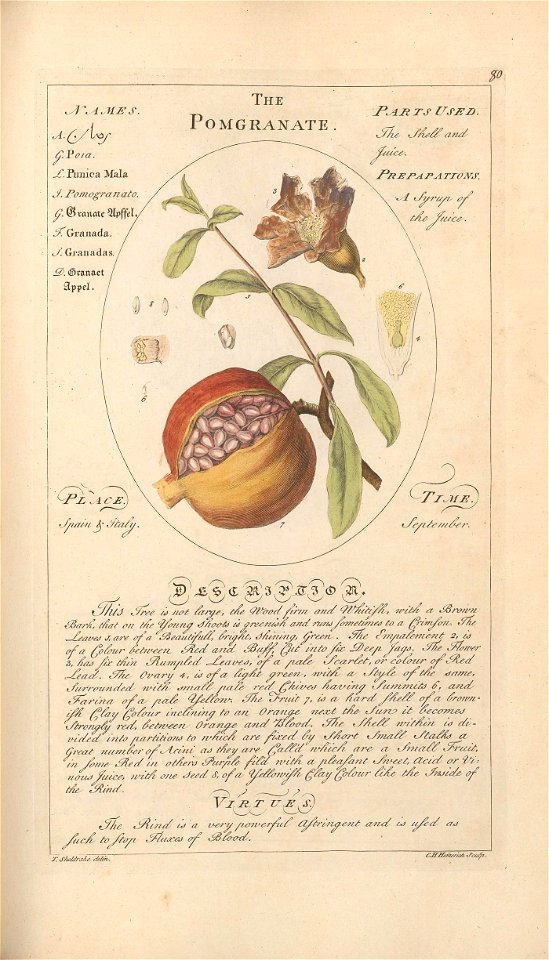 80
NAMES.
A.
G. Poia.
L. Punica Mala
I. Pomogranato.
G. Granate Apffel.
F. Granada.
S. Granadas.
D. Granaet
Appel.
THE
POMGRANATE.
PARTS USED.
The Shell and
Juice.
PREPAPATIONS.
A Syrup of
the Juice.
3
2
5
8
6
4
6
7
PLACE.
Spain & Italy.
TIME.
September.
DESCRIPTION.
This Tree is not large, the Wood firm and Whitiſh, with a Brown
Bark, that on the Young Shoots is greeniſh and runs ſometimes to a Crimſon. The
Leaves 5, are of a Beautifull, bright, shining Green. The Empalement 2, is
of a Colour between Red and Buff, Cut into ſix Deep Jags. The Flower
3, has ſix thin Rumpled Leaves, of a pale Scarlet, or colour of Red
Lead. The Ovary 4, is of a light green, with a Style of the same,
Surrounded with small pale red Chives having Summits 6, and
Farina of a pale Yellow. The Fruit 7, is a hard Shell of a brown-
iſh Clay Colour inclining to an Orange next the Sun; it becomes
Strongly red, between Orange and Blood. The Shell within is di-
vided into partitions to which are fixed by Short Small Stalks a
Great number of Acini as they are Call'd which are a Small Fruit,
in ſome Red in others Purple fild with a pleaſant Sweet, Acid or Vi-
nous Juice, with one Seed 8, of a Yellowiſh Clay Colour like the Inside of
the Rind.
VIRTUES.
The Rind is a very powerful Aſtringent and is uſed as
ſuch to ſtop Fluxes of Blood.
T. Sheldrake delin.
C.H. Hemerich Sculp.